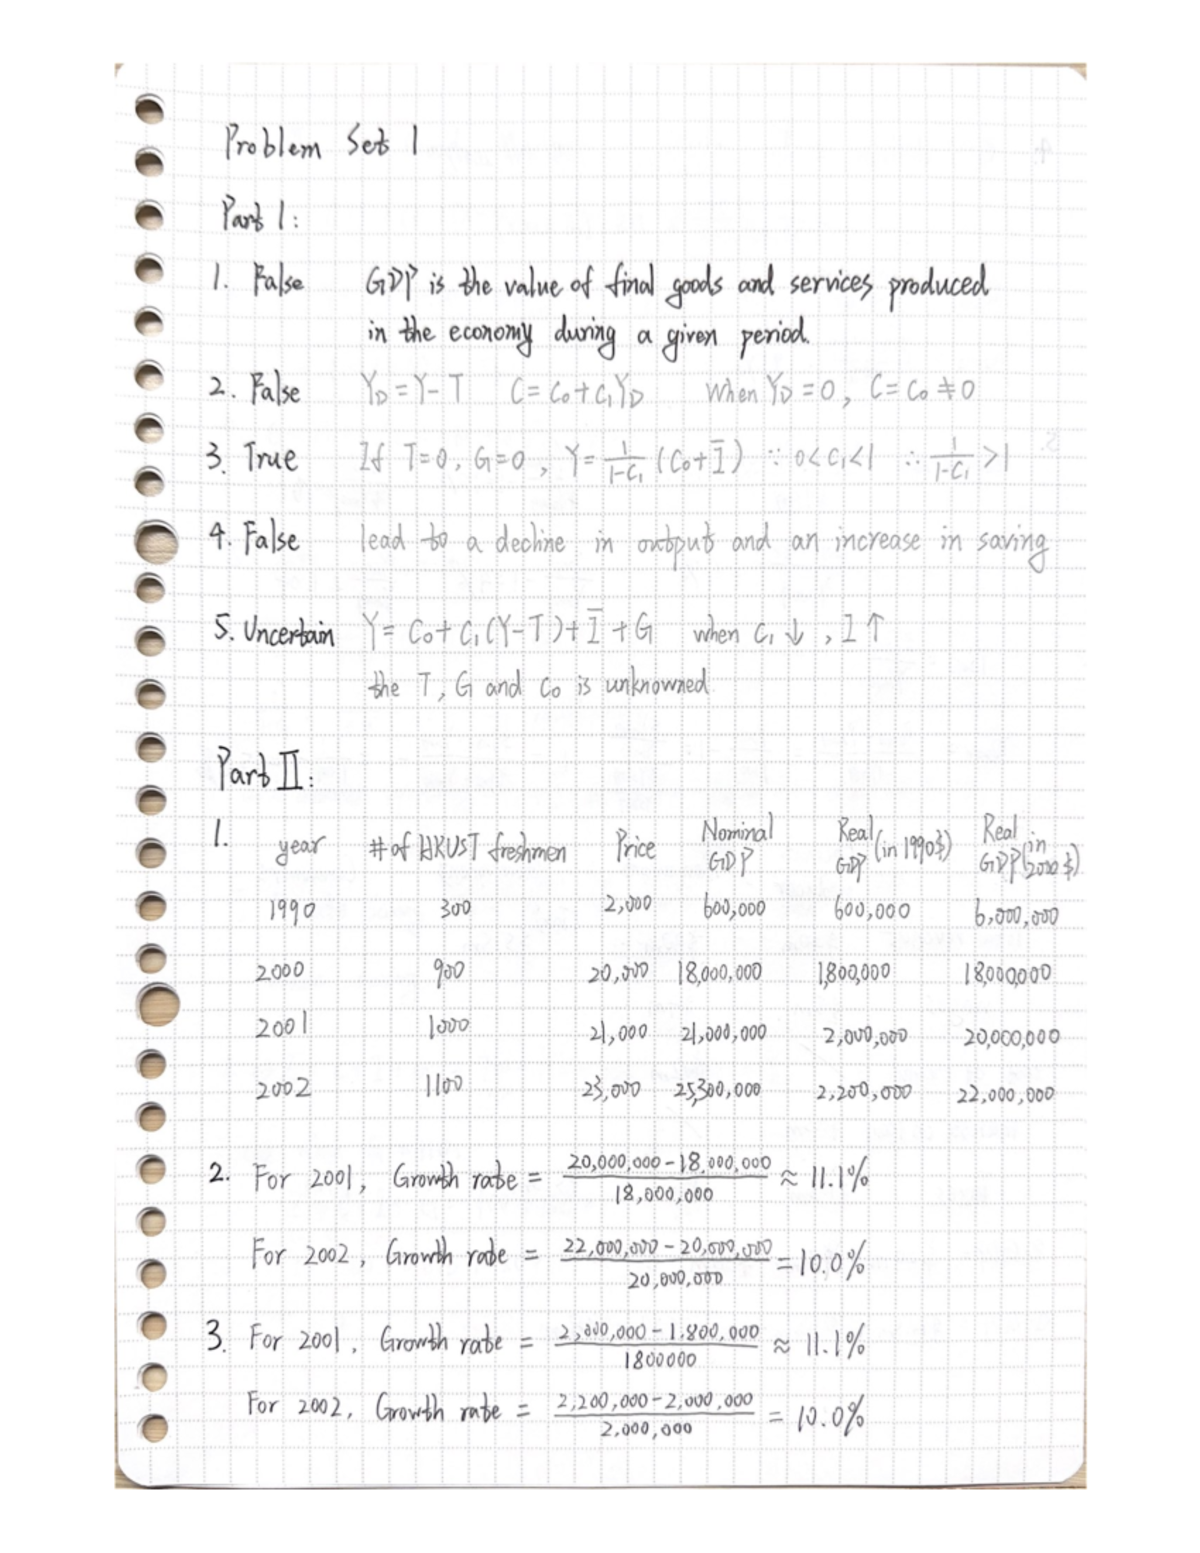 Problem Set 1
Part 1:
1. False GDP is the value of final goods and services produced
in the economy during a given period.
2. False Y_D = Y - T C = C₀ + C₁Y_D When Y_D = 0, C = C₀ ≠ 0
3. True If T=0, G=0, Y = 1/(1-C₁) (C₀ + Ī) ∵ 0<C₁<1 ∴ 1/(1-C₁) > 1
4. False lead to a decline in output and an increase in saving
5. Uncertain Y = C₀ + C₁(Y-T) + Ī + G when C₁ ↓, I ↑
the T, G and C₀ is unknowned
Part II:
1. year # of HKUST freshmen Price Nominal GDP Real GDP (in 1990$) Real GDP (in 2000$)
1990 300 2,000 600,000 600,000 6,000,000
2000 900 20,000 18,000,000 1,800,000 18,000,000
2001 1000 21,000 21,000,000 2,000,000 20,000,000
2002 1100 23,000 25,300,000 2,200,000 22,000,000
2. For 2001, Growth rate = (20,000,000 - 18,000,000)/18,000,000 ≈ 11.1%
For 2002, Growth rate = (22,000,000 - 20,000,000)/20,000,000 = 10.0%
3. For 2001, Growth rate = (2,000,000 - 1,800,000)/1800000 ≈ 11.1%
For 2002, Growth rate = (2,200,000 - 2,000,000)/2,000,000 = 10.0%